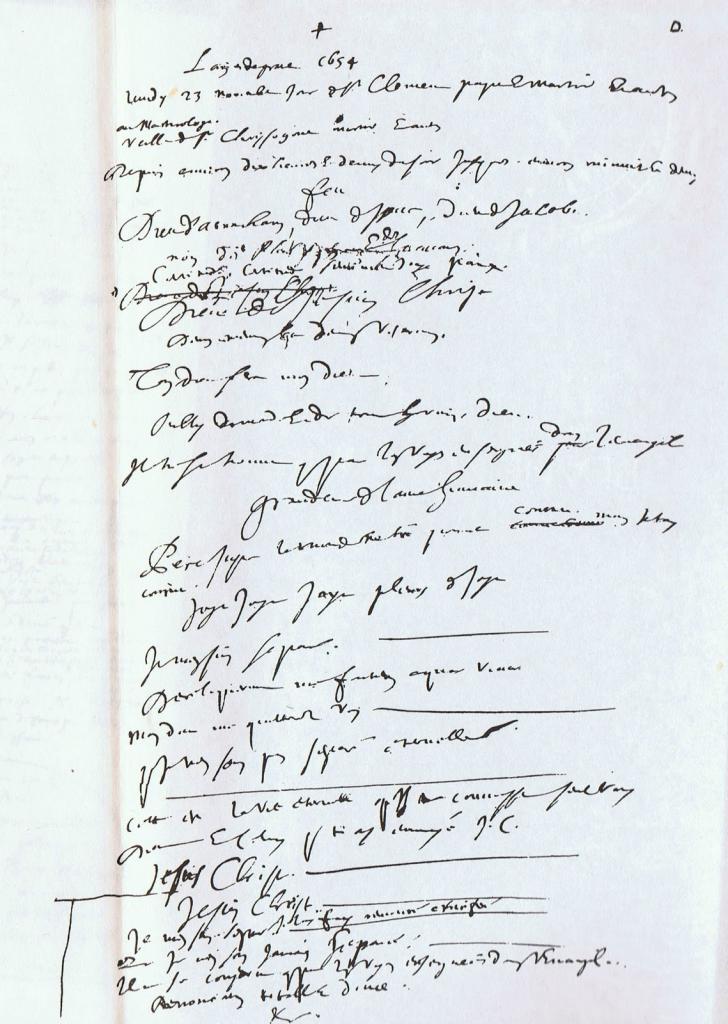 + D.
L'an de grace 1654
Lundy 23 novembre jour de St Clement pape et martir et autres
au Martirologe.
veille de St Chrysogone martir et autres
Depuis environ dix heures et demy du soir jusques environ minuit et demy
feu
Dieu d'Abraham, Dieu d'Isaac, Dieu de Jacob.
non des philosophes et des savans.
Certitude, certitude sentiment Joye paix
Dieu de Jesus Christ
Deum meum et deum vestrum.
Ton dieu sera mon dieu.
Oubly du monde et de tout hormis Dieu.
Il ne se trouve que par les voyes enseignées dans l'Evangile
Grandeur de l'ame humaine
Pere juste le monde ne t'a point connu mais je t'ay
connu.
Joye Joye Joye pleurs de Joye
Je m'en suis separé.
Dereliquerunt me fontem aquae vivae
mon dieu me quitterez vous
que je n'en sois pas separé eternellement.
Cette est la vie eternelle qu'ils te connoissent seul vray
Dieu et celuy que tu as envoyé J.C.
Jesus Christ.
Jesus Christ
Je m'en suis separé je l'ay fui renoncé crucifié
que je n'en sois jamais separé.
Il ne se conserve que par les voyes enseignées dans l'Evangile.
Renonciation totale et douce.
&c.